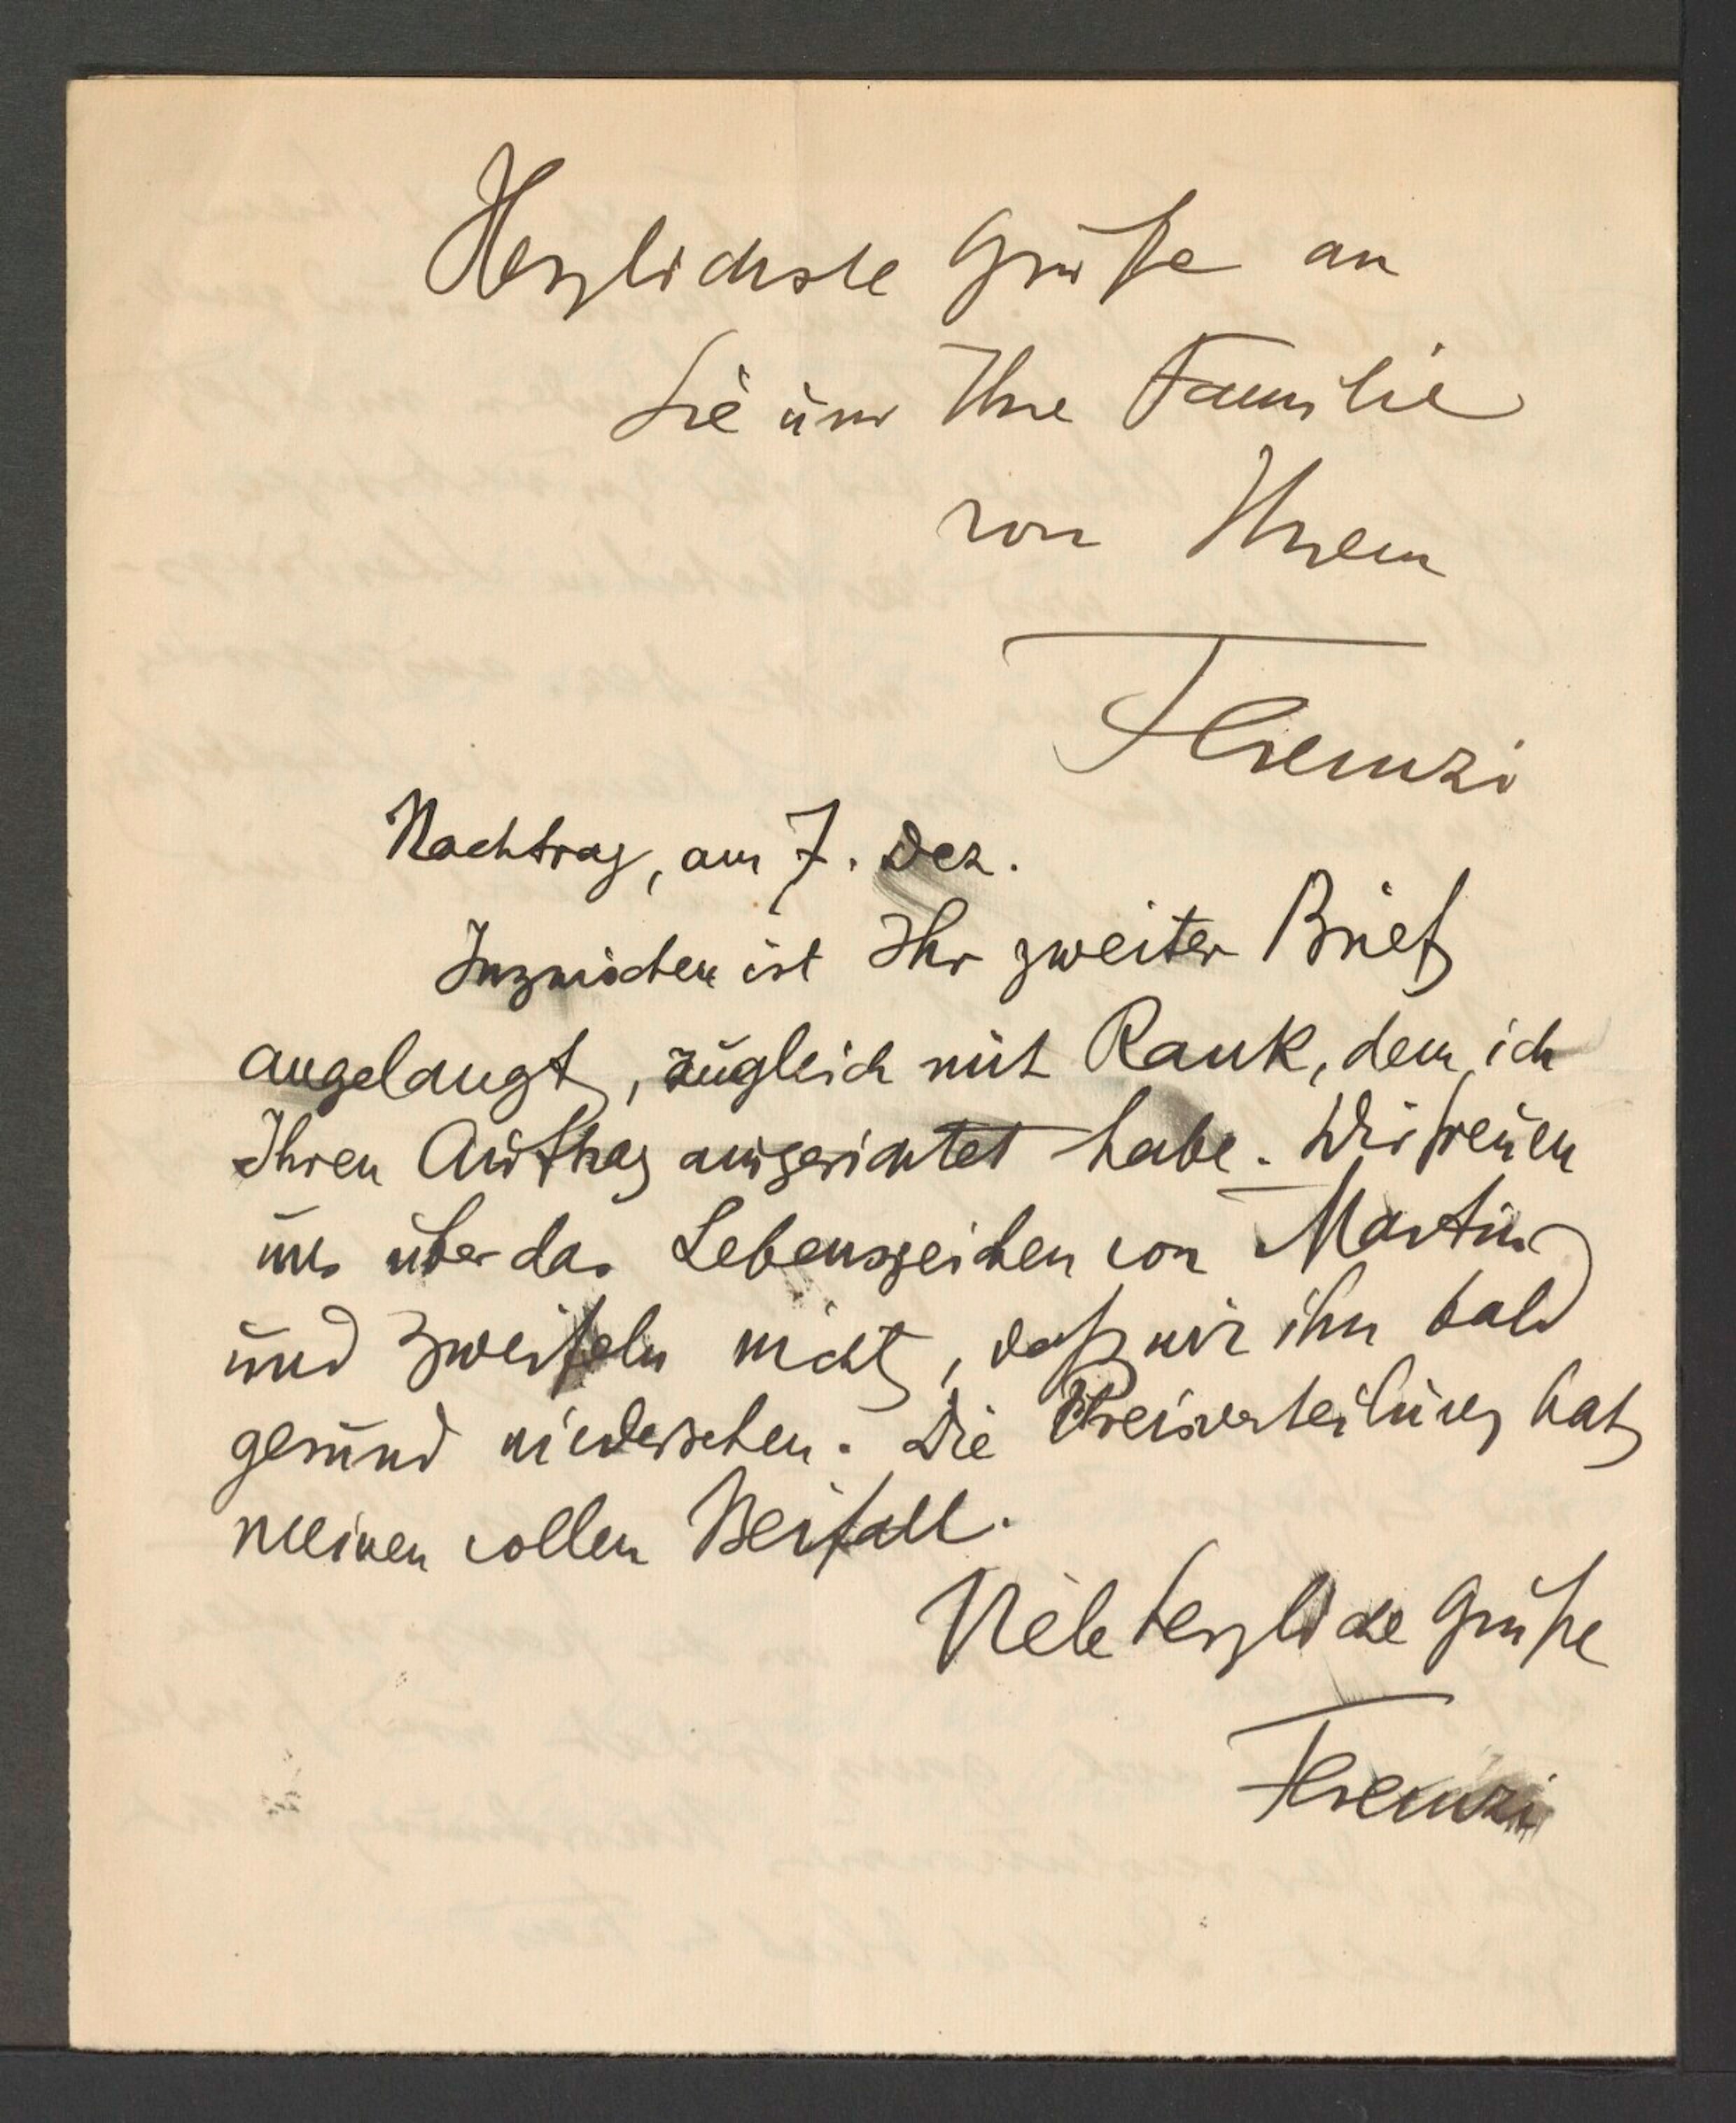 Herzlichste Grüße an
Sie und Ihre Familie
von Ihrem
Ferenczi
Nachtrag, am 7. Dez.
Inzwischen ist Ihr zweiter Brief
angelangt, zugleich mit Rank, dem ich
Ihren Auftrag ausgerichtet habe. Wir freuen
uns über das Lebenszeichen von Martin
und zweifeln nicht, daß wir ihn bald
gesund wiedersehen. Die Preisverteilung hat
meinen vollen Beifall.
Viele herzliche Grüße
Ferenczi